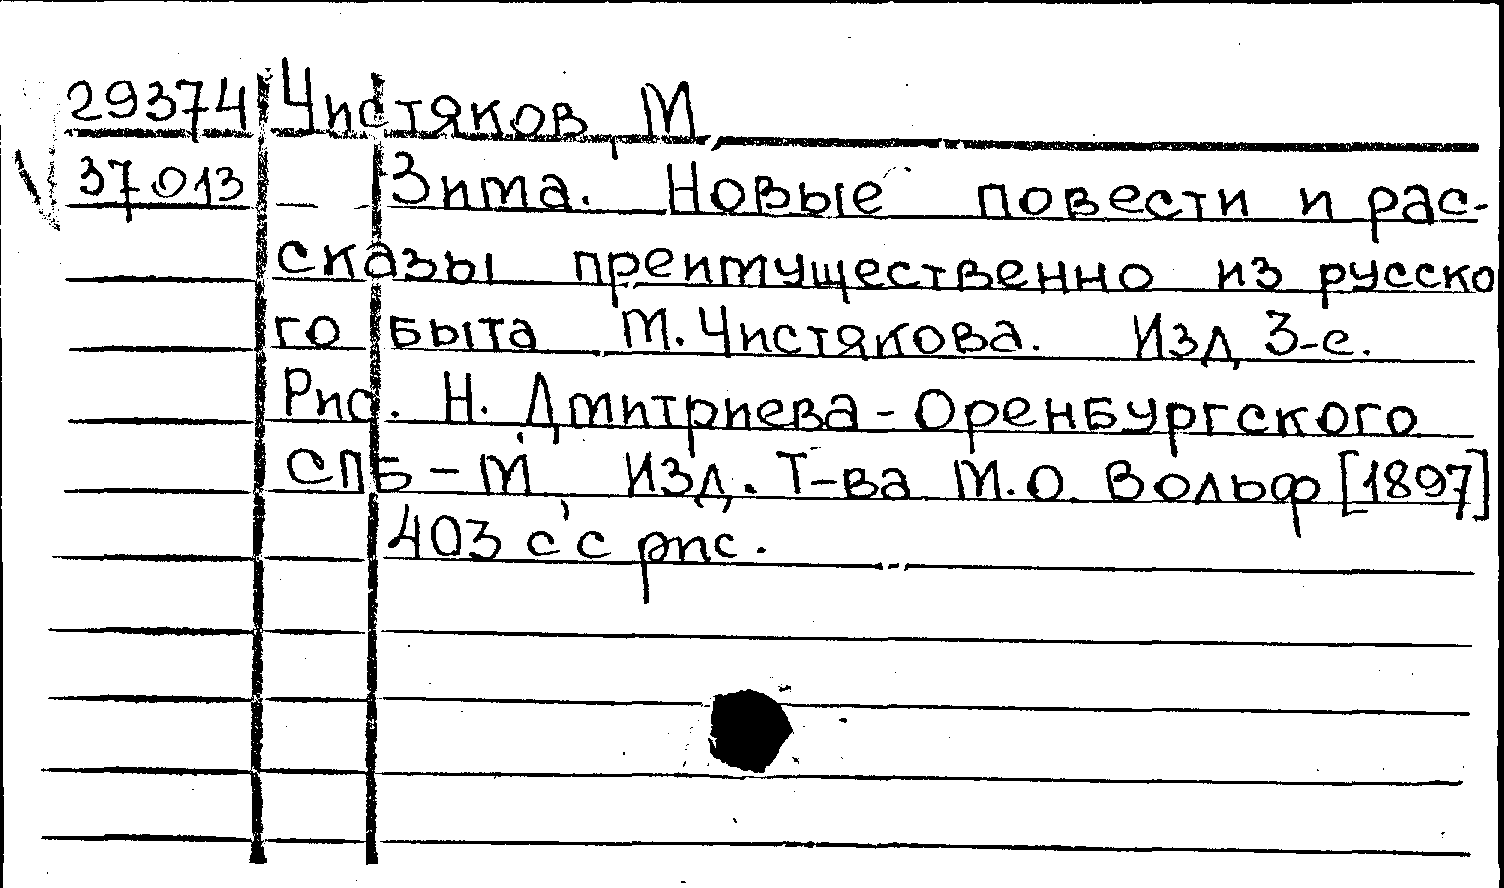 29374 Чистяков, М
37013 Зима. Новые повести и рас-
сказы преимущественно из русско
го быта М. Чистякова. Изд 3-е.
Рис. Н. Дмитриева-Оренбургского
СПБ-М, Изд. Т-ва М.О. Вольф [1897]
403 с с рис.